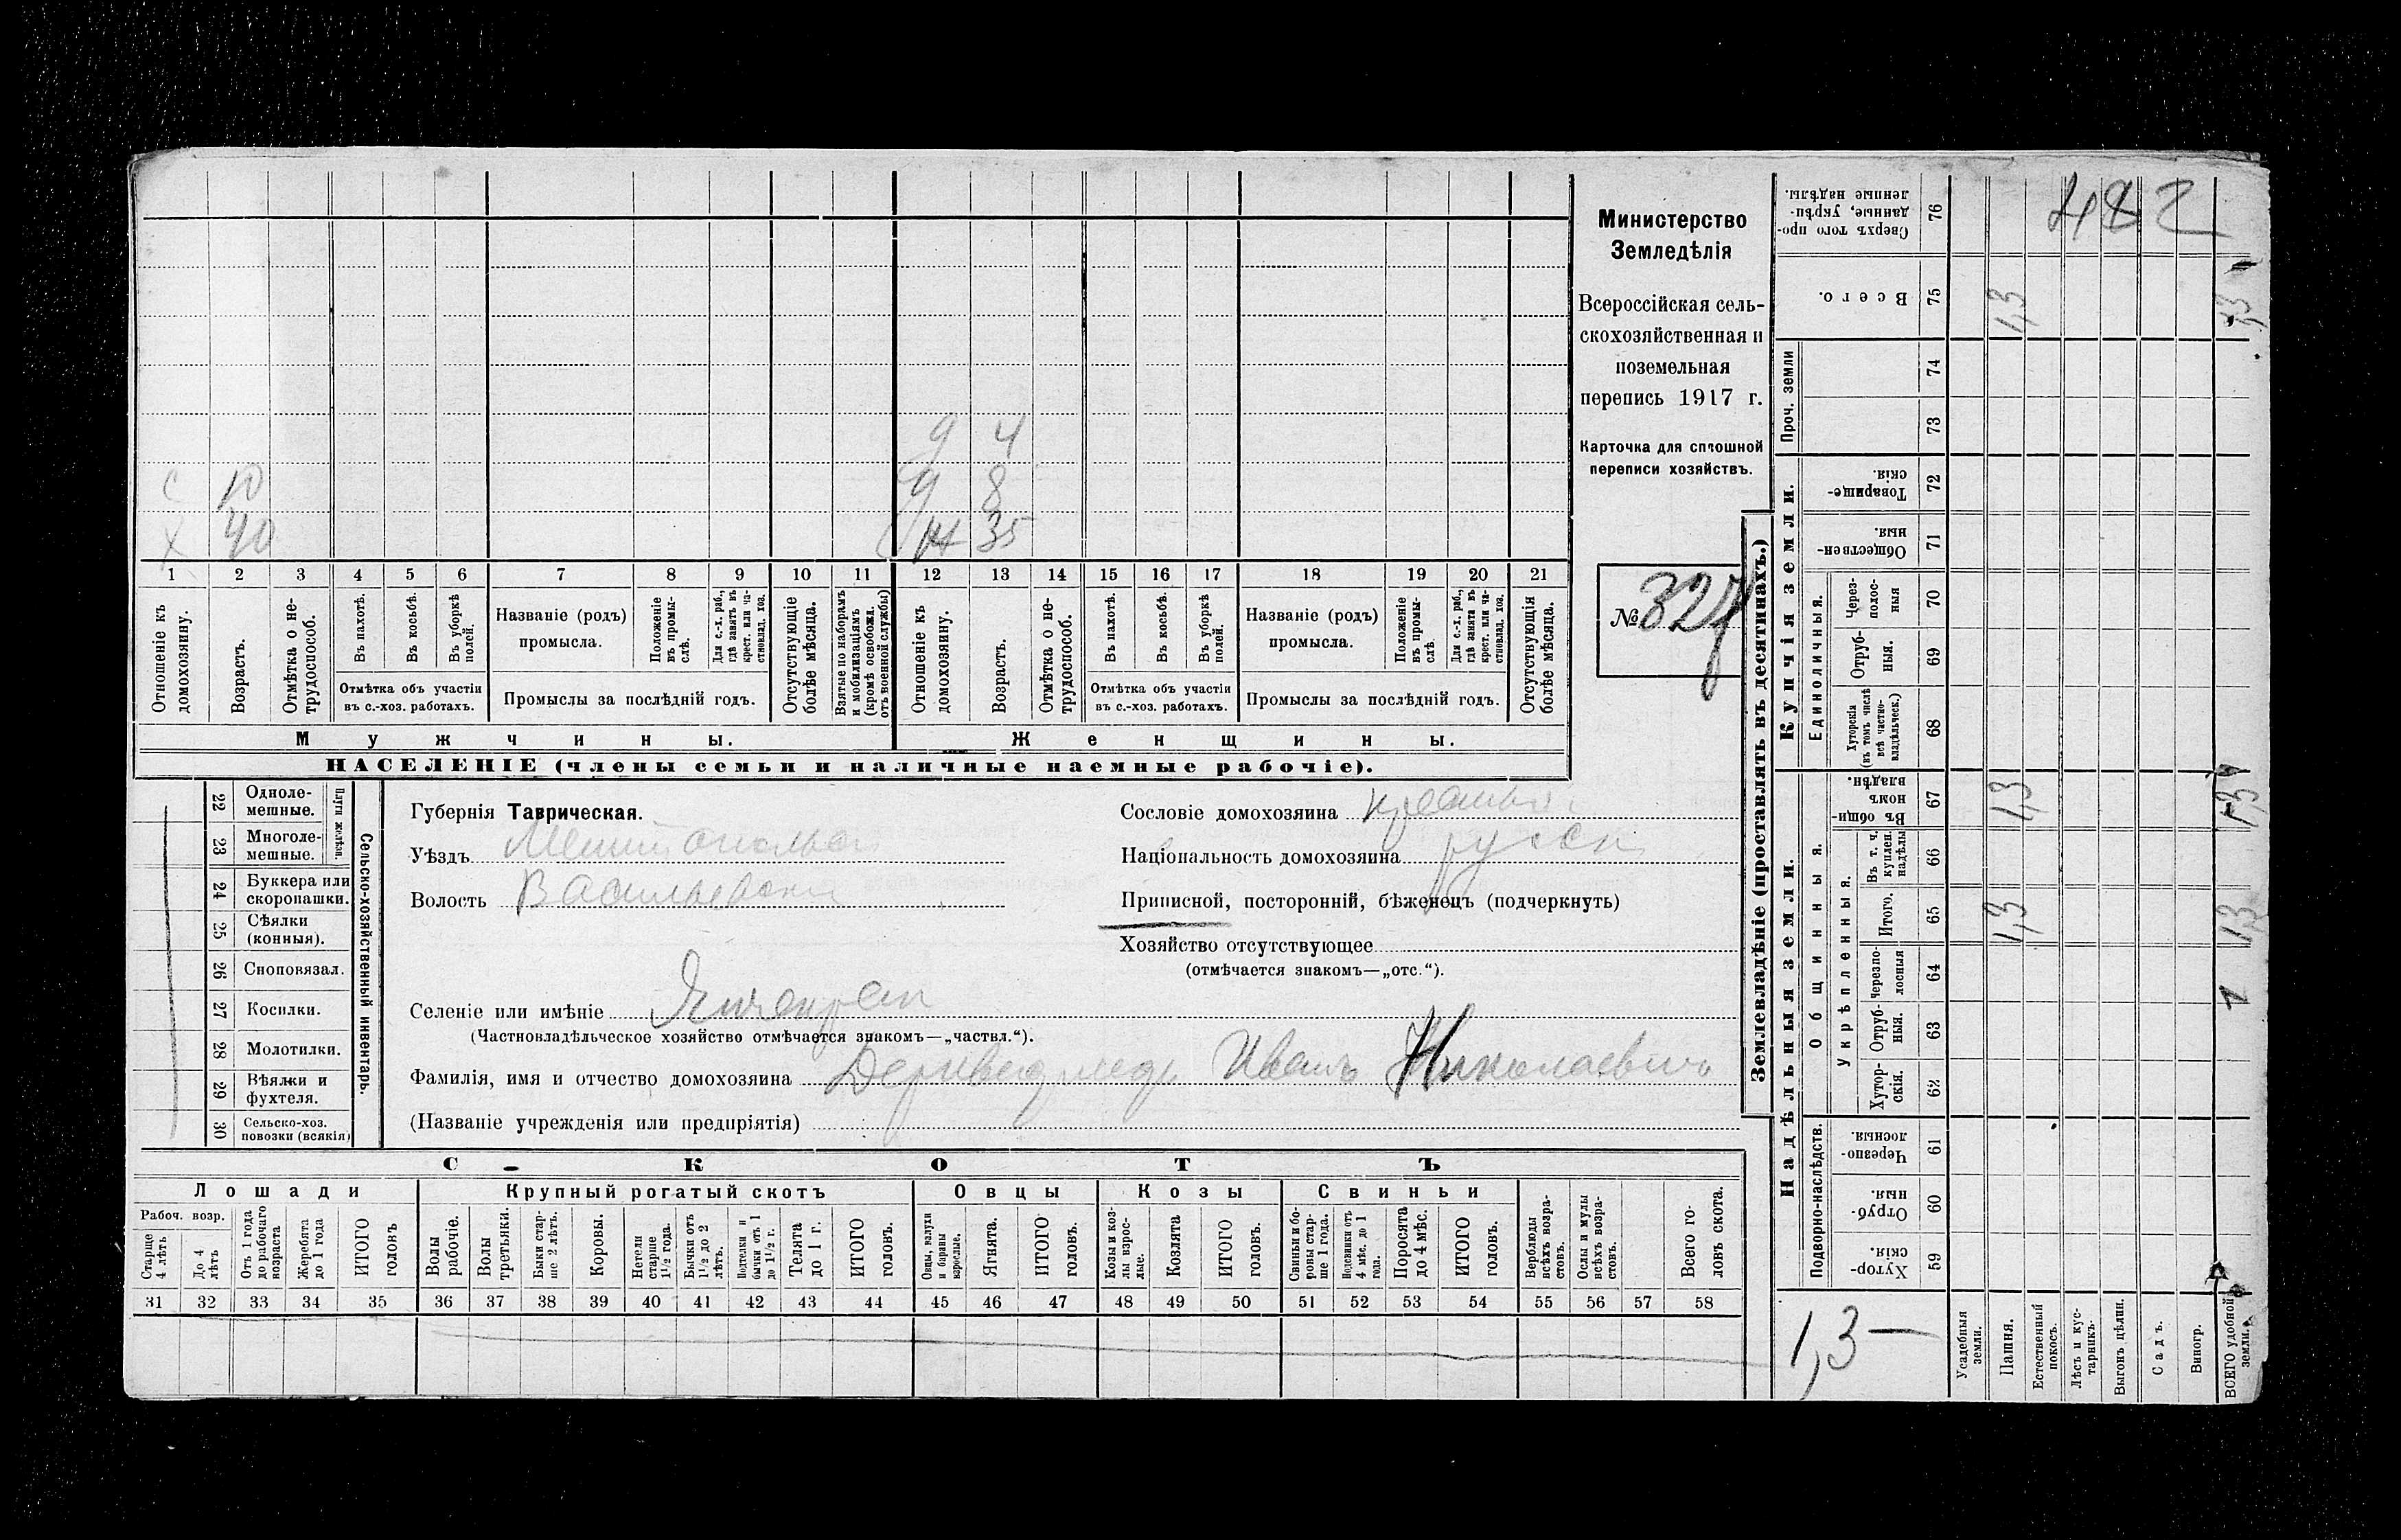 Министерство
Земледѣлія
Всероссійская сель-
скохозяйственная и
поземельная
перепись 1917 г.
Карточка для сплошной
переписи хозяйствъ.
№ 327
482
д 4
с 10 д 8
х 40 ж 35
1 2 3 4 5 6 7 8 9 10 11 12 13 14 15 16 17 18 19 20 21
Отношеніе къ домохозяину.
Возрастъ.
Отмѣтка о не-трудоспособ.
Въ пахотѣ.
Въ косьбѣ.
Въ уборкѣ полей.
Отмѣтка объ участіи
въ с.-хоз. работахъ.
Названіе (родъ)
промысла.
Положеніе въ промы-слѣ.
Для с.-х. раб., гдѣ занятъ въ крест. или ча-стновлад. хоз.
Промыслы за послѣдній годъ.
Отсутствующіе болѣе мѣсяца.
Взятые по наборамъ и мобилизаціямъ (кромѣ освобожд. отъ военной службы)
Отношеніе къ домохозяину.
Возрастъ.
Отмѣтка о не-трудоспособ.
Въ пахотѣ.
Въ косьбѣ.
Въ уборкѣ полей.
Отмѣтка объ участіи
въ с.-хоз. работахъ.
Названіе (родъ)
промысла.
Положеніе въ промы-слѣ
Для с.-х. раб., гдѣ заняты въ крест. или ча-стновлад. хоз.
Промыслы за послѣдній годъ.
Отсутствующія болѣе мѣсяца.
Мужчины.
Женщины.
НАСЕЛЕНІЕ (члены семьи и наличные наемные рабочіе).
Сельско-хозяйственный инвентарь.
Плуги желѣзн.
22 Одноле-мешные.
23 Многоле-мешные.
24 Буккера или скоропашки.
25 Сѣялки (конныя).
26 Сноповязал.
27 Косилки.
28 Молотилки.
29 Вѣялки и фухтеля.
30 Сельско-хоз. повозки (всякія)
Губернія Таврическая.
Уѣздъ
Волость
Сословіе домохозяина
Національность домохозяина русск
Приписной, посторонній, бѣженецъ (подчеркнуть)
Хозяйство отсутствующее
(отмѣчается знакомъ—„отс.“).
Селеніе или имѣніе
(Частновладѣльческое хозяйство отмѣчается знакомъ—„частвл.“).
Фамилія, имя и отчество домохозяина Иванъ Николаевичъ
(Названіе учрежденія или предпріятія)
СКОТЪ
Лошади
Рабоч. возр.
Старше 4 лѣтъ
До 4 лѣтъ
Отъ 1 года до рабочаго возраста
Жеребята до 1 года
ИТОГО головъ
Крупный рогатый скотъ
Волы рабочіе.
Волы третьяки.
Быки стар-ше 2 лѣтъ.
Коровы.
Нетели старше 1½ года.
Бычки отъ 1½ до 2 лѣтъ.
Подтелки и бычки отъ 1 до 1½ г.
Телята до 1 г.
ИТОГО головъ.
Овцы
Овцы, валухи и бараны взрослые.
Ягнята.
ИТОГО головъ.
Козы
Козы и коз-лы взрос-лые.
Козлята
ИТОГО головъ.
Свиньи
Свиньи и бо-ровы стар-ше 1 года.
Подсвинки отъ 4 мѣс. до 1 года.
Поросята до 4 мѣс.
ИТОГО головъ.
Верблюды всѣхъ возра-стовъ.
Ослы и мулы всѣхъ возра-стовъ.
Всего го-ловъ скота.
31 32 33 34 35 36 37 38 39 40 41 42 43 44 45 46 47 48 49 50 51 52 53 54 55 56 57 58
Землевладѣніе (проставлять въ десятинахъ.)
76 Сверхъ того про-данные, укрѣп-ленные надѣлы.
75 Всего. 1,3
Проч. земли
74
73
Купчія земли.
72 Товарище-скія.
71 Обществен-ныя.
Единоличныя.
70 Через-полос-ныя
69 Отруб-ныя.
68 Хуторскія (въ томъ числѣ всѣ частно-владѣльческ.)
Надѣльныя земли.
Общинныя.
67 Въ общи-номъ владѣн. 1,3 1,3
Укрѣпленныя.
66 Въ т. ч. куплен. надѣлы
65 Итого. 1,3 1,3
64 Черезпо-лосныя
63 Отруб-ныя.
62 Хутор-скія.
Подворно-наслѣдств.
61 Черезпо-лосныя.
60 Отруб-ныя.
59 Хутор-скія.
1,3
Усадебныя земли.
Пашня.
Естественный покосъ.
Лѣсъ и кус-тарникъ.
Выгонъ цѣлин.
Садъ.
Виногр.
ВСЕГО удобной земли.